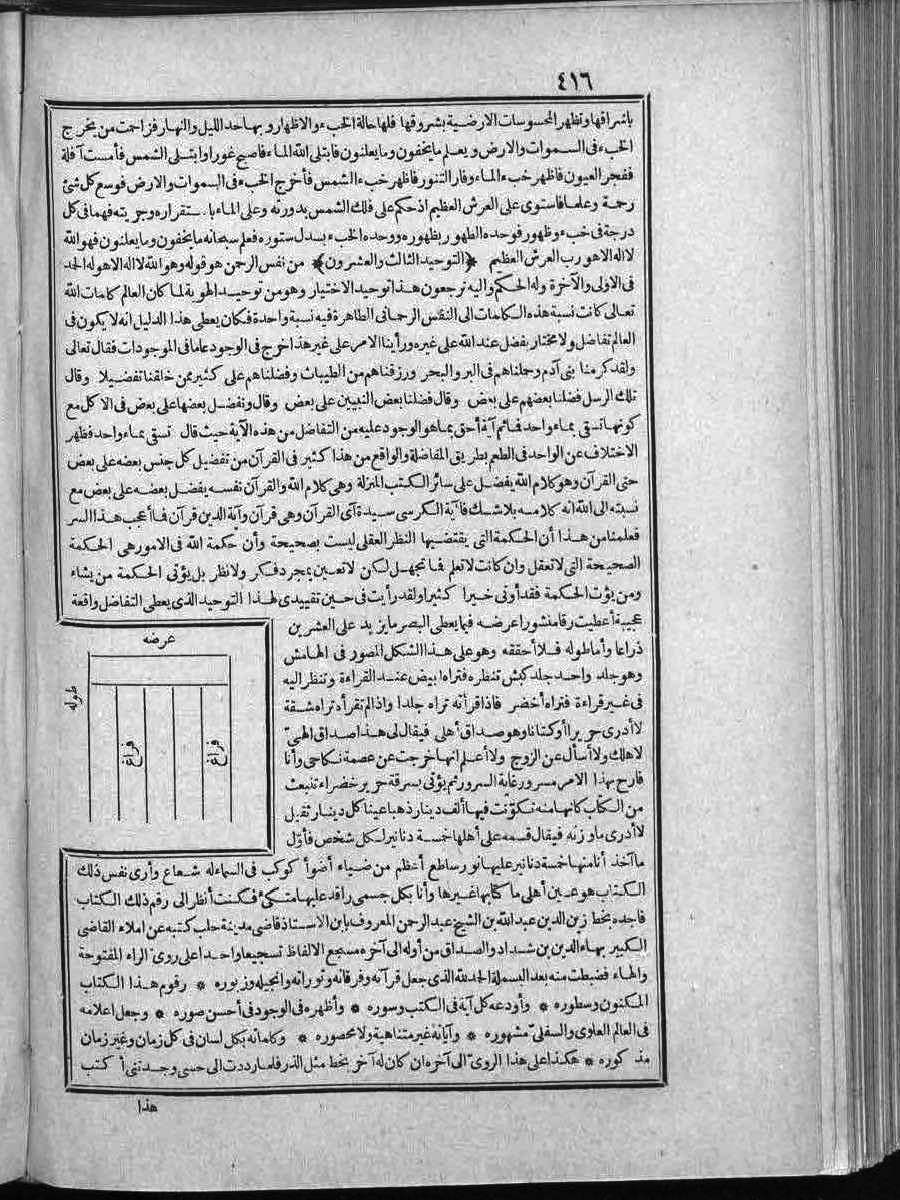 ٤١٦
باشراقها وتظهر المحسوسات الارضية بشروقها فلها حالة الخبء والاظهار وبها حد الليل والنهار فزاحمت من يخرج
الخبء فى السموات والارض ويعلم ما يخفون وما يعلنون فابتلى الله الماء فاصبح غورا وابتلى الشمس فأمست آفلة
ففجر العيون فاظهر خبء الماء وفار التنور فاظهر خبء الشمس فأخرج الخبء فى السموات والارض فوسع كل شئ
رحمة وعلما فاستوى على العرش العظيم اذ حكم على فلك الشمس بدورته وعلى الماء باستقراره وجريته فهما فى كل
درجة فى خبء وظهور فوحده الظهور بظهوره ووحده الخبء بسدل ستوره فعلم سبحانه ما يخفون وما يعلنون فهو الله
لا اله الا هو رب العرش العظيم ﴿التوحيد الثالث والعشرون﴾ من نفس الرحمن هو قوله وهو الله لا اله الا هو له الحمد
فى الاولى والآخرة وله الحكم واليه ترجعون هذا توحيد الاختيار وهو من توحيد الهوية لما كان العالم كلمات الله
تعالى كانت نسبة هذه الكلمات الى النفس الرحمانى الظاهرة فيه نسبة واحدة فكان يعطى هذا الدليل انه لا يكون فى
العالم تفاضل ولا مختار بفضل عند الله على غيره ورأينا الامر على غير هذا خرج فى الوجود عاما فى الموجودات فقال تعالى
ولقد كرمنا بنى آدم وحملناهم فى البر والبحر ورزقناهم من الطيبات وفضلناهم على كثير ممن خلقنا تفضيلا وقال
تلك الرسل فضلنا بعضهم على بعض وقال فضلنا بعض النبيين على بعض وقال ونفضل بعضها على بعض فى الاكل مع
كونها تسقى بماء واحد فما ثم آية أحق بما هو الوجود عليه من التفاضل من هذه الآية حيث قال تسقى بماء واحد فظهر
الاختلاف عن الواحد فى الطعم بطريق المفاضلة والواقع من هذا كثير فى القرآن من تفضيل كل جنس بعضه على بعض
حتى القرآن وهو كلام الله يفضل على سائر الكتب المنزلة وهى كلام الله والقرآن نفسه يفضل بعضه على بعض مع
نسبته الى الله انه كلامه بلا شك فآية الكرسى سيدة آى القرآن وهى قرآن وآية الدين قرآن فما أعجب هذا السر
فعلمنا من هذا أن الحكمة التى يقتضيها النظر العقلى ليست بصحيحة وأن حكمة الله فى الامور هى الحكمة
الصحيحة التى لا تعقل وان كانت لا تعلم فما تجهل لكن لا تعين بمجرد فكر ولا نظر بل يؤتى الحكمة من يشاء
ومن يؤت الحكمة فقد أوتى خيرا كثيرا ولقد رأيت فى حين تقييدى لهذا التوحيد الذى يعطى التفاضل واقعة
عجيبة أعطيت رقا منشورا عرضه فيما يعطى البصر ما يزيد على العشرين
ذراعا وأما طوله فلا أحققه وهو على هذا الشكل المصور فى الهامش
وهو جلد واحد جلد كبش تنظره فتراه ابيض عند القراءة وتنظر اليه
فى غير قراءة فتراه أخضر فاذا قرأته تراه جلدا واذا لم تقرأه تراه شقة
لا أدرى حريرا أو كتانا وهو صداق أهلى فيقال لى هذا صداق الهىّ
لاهلك ولا أسأل عن الزوج ولا أعلم انها خرجت عن عصمة نكاحى وأنا
فارح بهذا الامر مسرور غاية السرور ثم يؤتى بسرقة حرير خضراء تنبعث
من الكتاب كانها منه تكوّنت فيها ألف دينار ذهبا عينا كل دينار ثقيل
لا أدرى ما وزنه فيقال قسمه على أهلها خمسة دنانير لكل شخص فأوّل
عرضه
طوله
قراءة
قراءة
ما آخذ أنا منها خمسة دنانير عليها نور ساطع أعظم من ضياء أضوأ كوكب فى السماء له شعاع وأرى نفس ذلك
الكتاب هو عين أهلى ما كتابها غيرها وأنا بكل جسمى راقد عليها متكئ فكنت أنظر الى رقم ذلك الكتاب
فاجده بخط زين الدين عبد الله بن الشيخ عبد الرحمن المعروف بابن الاستاذ قاضى مدينة حلب كتبه عن املاء القاضى
الكبير بهاء الدين بن شداد والصداق من أوله الى آخره مسجع الالفاظ تسجيعا واحدا على روىّ الراء المفتوحة
والهاء فضبطت منه بعد البسملة الحمد لله الذى جعل قرآنه وفرقانه وتوراته وانجيله وزبوره * رقوم هذا الكتاب
المكنون وسطوره * وأودعه كل آية فى الكتب وسوره * وأظهره فى الوجود فى أحسن صوره * وجعل اعلامه
فى العالم العلوى والسفلى مشهوره * وآياته غير متناهية ولا محصوره * وكلماته بكل لسان فى كل زمان وغير زمان
مذكوره * هكذا على هذا الروىّ الى آخره ان كان له آخر بخط مثل الذر فلما رددت الى حسى وجدتنى أكتب
هذا